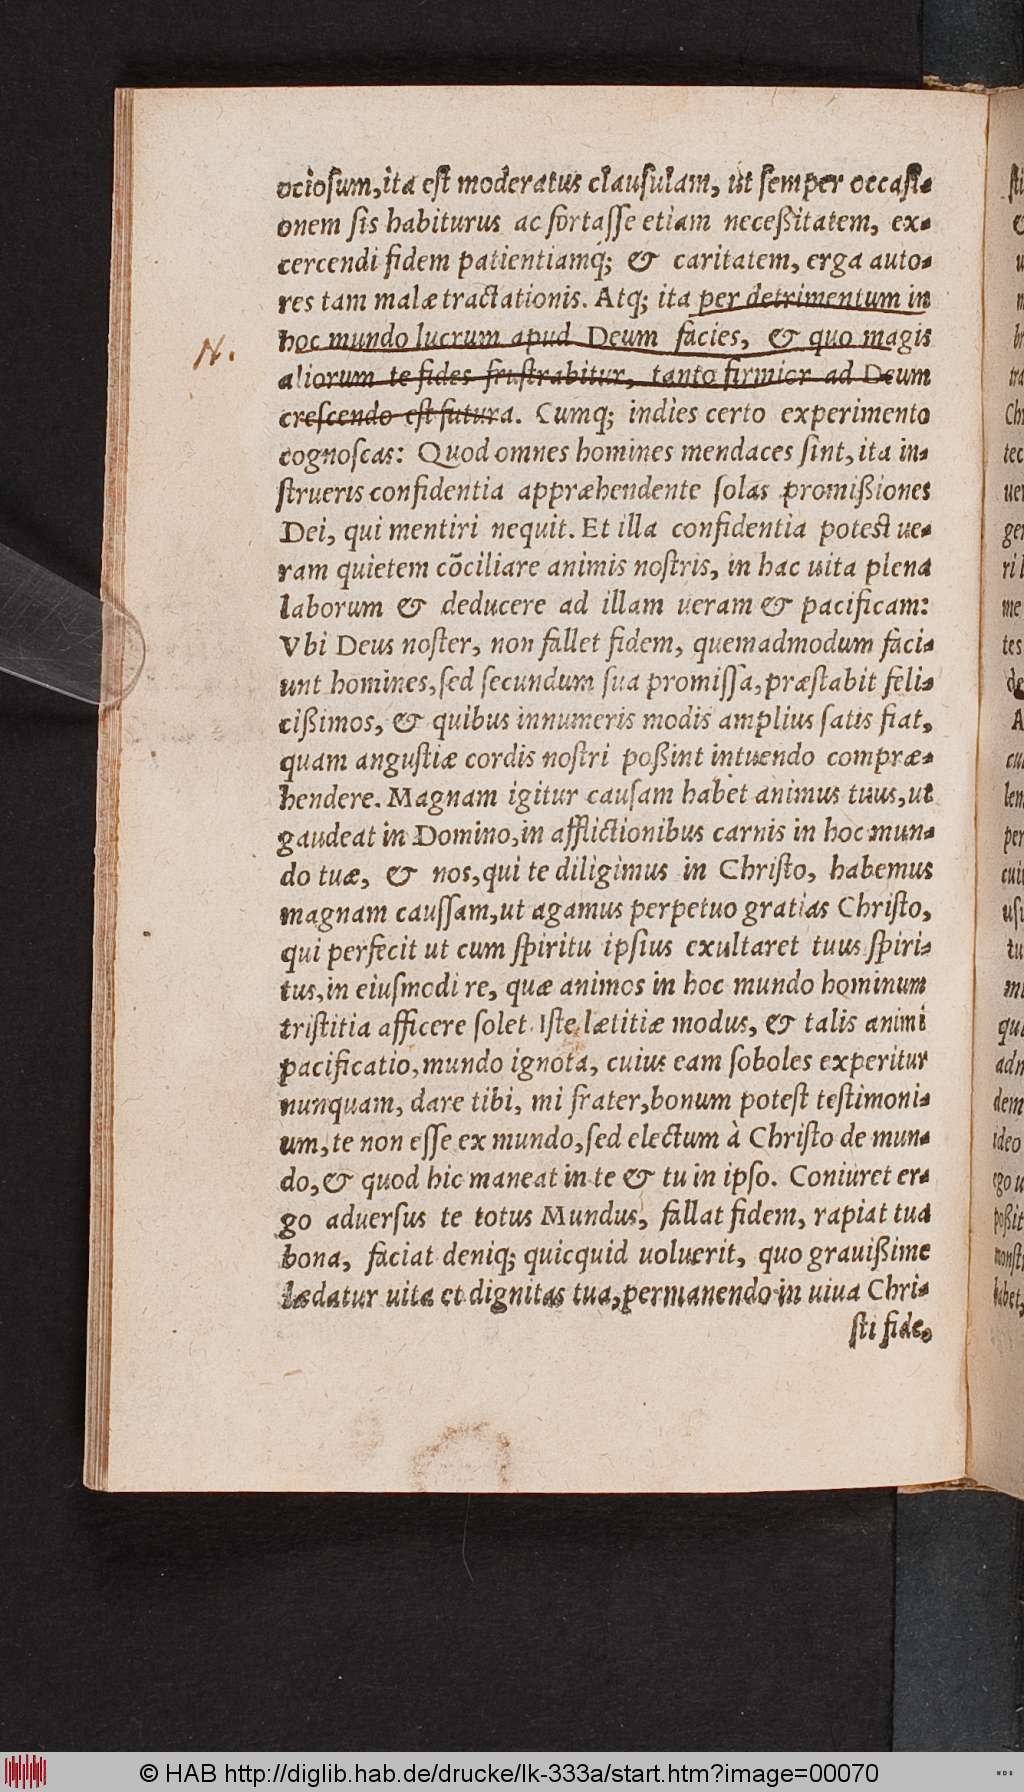 ociosum, ita est moderatus clausulam, ut semper occasi-
onem sis habiturus ac fortasse etiam neceßitatem, ex-
cercendi fidem patientiamq́; & caritatem, erga auto-
res tam malæ tractationis. Atq; ita per detrimentum in
hoc mundo lucrum apud Deum facies, & quo magis
N.
aliorum te fides frustrabitur, tanto firmior ad Deum
crescendo est futura. Cumq; indies certo experimento
cognoscas: Quod omnes homines mendaces sint, ita in-
strueris confidentia appræhendente solas promißiones
Dei, qui mentiri nequit. Et illa confidentia potest ue-
ram quietem cõciliare animis nostris, in hac uita plena
laborum & deducere ad illam ueram & pacificam:
Vbi Deus noster, non fallet fidem, quemadmodum faci-
unt homines, sed secundum sua promissa, præstabit feli-
cißimos, & quibus innumeris modis amplius satis fiat,
quam angustiæ cordis nostri poßint intuendo compræ-
hendere. Magnam igitur causam habet animus tuus, ut
gaudeat in Domino, in afflictionibus carnis in hoc mun-
do tuæ, & nos, qui te diligimus in Christo, habemus
magnam caussam, ut agamus perpetuo gratias Christo,
qui perfecit ut cum spiritu ipsius exultaret tuus spiri-
tus, in eiusmodi re, quæ animos in hoc mundo hominum
tristitia afficere solet. Iste lætitiæ modus, & talis animi
pacificatio, mundo ignota, cuius eam soboles experitur
nunquam, dare tibi, mi frater, bonum potest testimoni-
um, te non esse ex mundo, sed electum à Christo de mun-
do, & quod hic maneat in te & tu in ipso. Coniuret er-
go aduersus te totus Mundus, fallat fidem, rapiat tua
bona, faciat deniq; quicquid uoluerit, quo grauißime
lædatur uita et dignitas tua, permanendo in uiua Chri-
sti fide,
© HAB http://diglib.hab.de/drucke/lk-333a/start.htm?image=00070